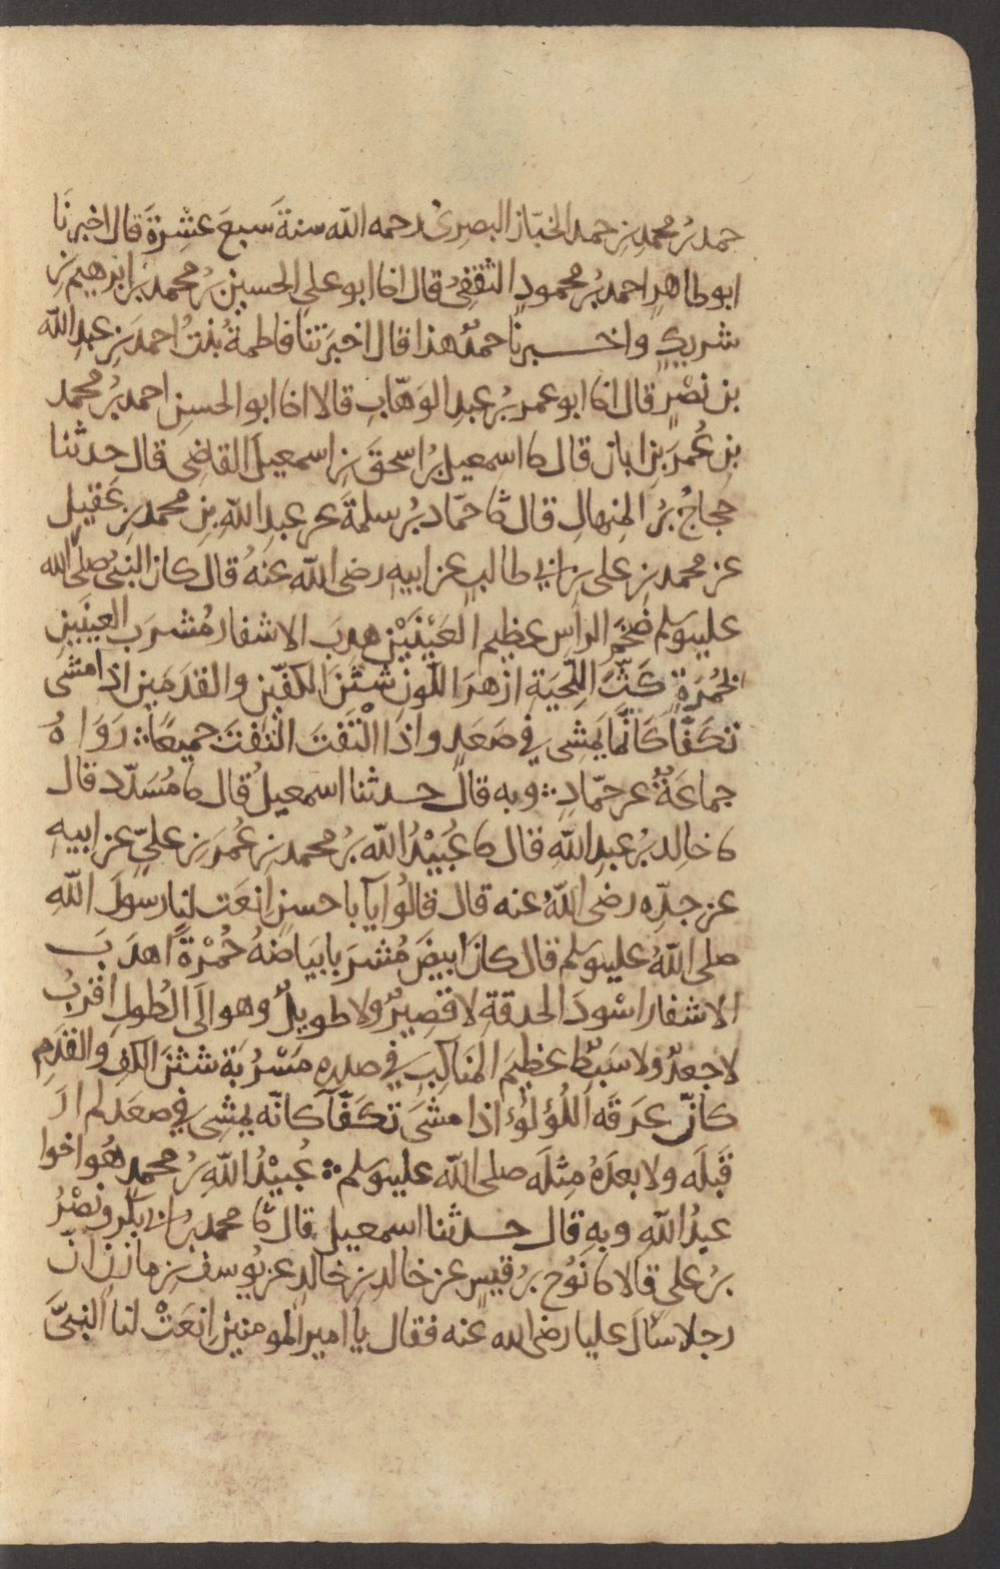 حمد بن محمد بن حمد الخباز البصرى رحمه الله سنةَ سبعَ عشرةَ قال اخبرنَا
ابو طاهرٍ احمد بنُ محمودٍ الثقفىُ قال انا ابو علي الحسين بنُ محمد بن ابرهيم بن
شريكٍ واخـــبرنَا حمدٌ هذا قال اخبرَتنا فاطمةُ بنتُ احمدَ بنِ عبدِ الله
بن نصْرٍ قال انا ابو عمر بنُ عبدِ الوَهّابِ قالا انا ابو الحسن احمد بنُ محمد
بنِ عُمَرَ بنِ ابان قال نا اسمعيل بنُ اسحقَ بن اسمعيلَ القاضى قال حدثنا
حجاجُ بنُ المنهالِ قال ثنا حمّاد بنُ سلمةَ عن عبدِ اللّه بنِ محمدِ بن عَقيلٍ
عن محمد بنِ على بن ابي طالبٍ عن ابيهِ رضى الله عنهُ قال كان النبىُ صلى الله
عليه وسلم ضخمَ الراسِ عظيم العَيْنَيْنِ هدِبَ الاشفار مُشرَب العينَينِ
بحُمرَةٍ كَثَّ اللِّحيَة ازهرَ اللّونِ شَثْنَ الكفّينِ والقدَمَينِ اذا مشى
تكَفّأ كَانّما يمشى في صَعَدٍ واذا الْتفَتَ التفتَ جميعًا ∴ رَوَاهُ
جماعَةٌ عن حمّادٍ ∴ وبه قال حـدثنا اسمعيلُ قال نا مُسَدّد قال
نا خالِد بنُ عبدِ اللّهِ قال نا عُبيْدُ اللّه بنُ محمدِ بنِ عُمَرَ بنِ عليٍّ عن ابيهِ
عن جدِّه رضى اللّهُ عنه قال قالُوا يآبا حسنٍ انعَت لنا رسولَ اللّهِ
صلى اللّهُ عليه وسلم قال كانَ ابيضَ مُشرَبا بيَاضهُ حُمْرةً اهدَبَ
الاشفار اسْودَ الحدقةِ لا قصيرٌ ولا طويلٌ وهو الَى الطُولِ اقرَبُ
لا جعدٌ ولا سَبِطٌ عظيمَ المَناكبِ في صدره مَسْرُبَة شثنَ الكفِ والقدَمِ
كانّ عرَقَه اللُؤلُؤ اذا مشَى تكَفّأ كانّه يمشى في صعَد لم ارَ
قَبلَه ولا بعدَهُ مِثلَه صلى الله عليه وسلم ∴ عُبيْدُ اللّهِ بنُ محمدٍ هُو اخوا
عبدُ اللّهِ وبهِ قال حـدثنا اسمعيل قال ثنا محمد بنُ ابي بكْرٍ ونصْرُ
بنُ علىٍ قالا نا نوُح بنُ قيسٍ عن خالدِ بنِ خالدٍ عن يُوسفَ بنِ مازنٍ انّ
رجلا سألَ عليا رضى الله عنه فقال يا امير المومنين انعَتْ لنا النبىَّ